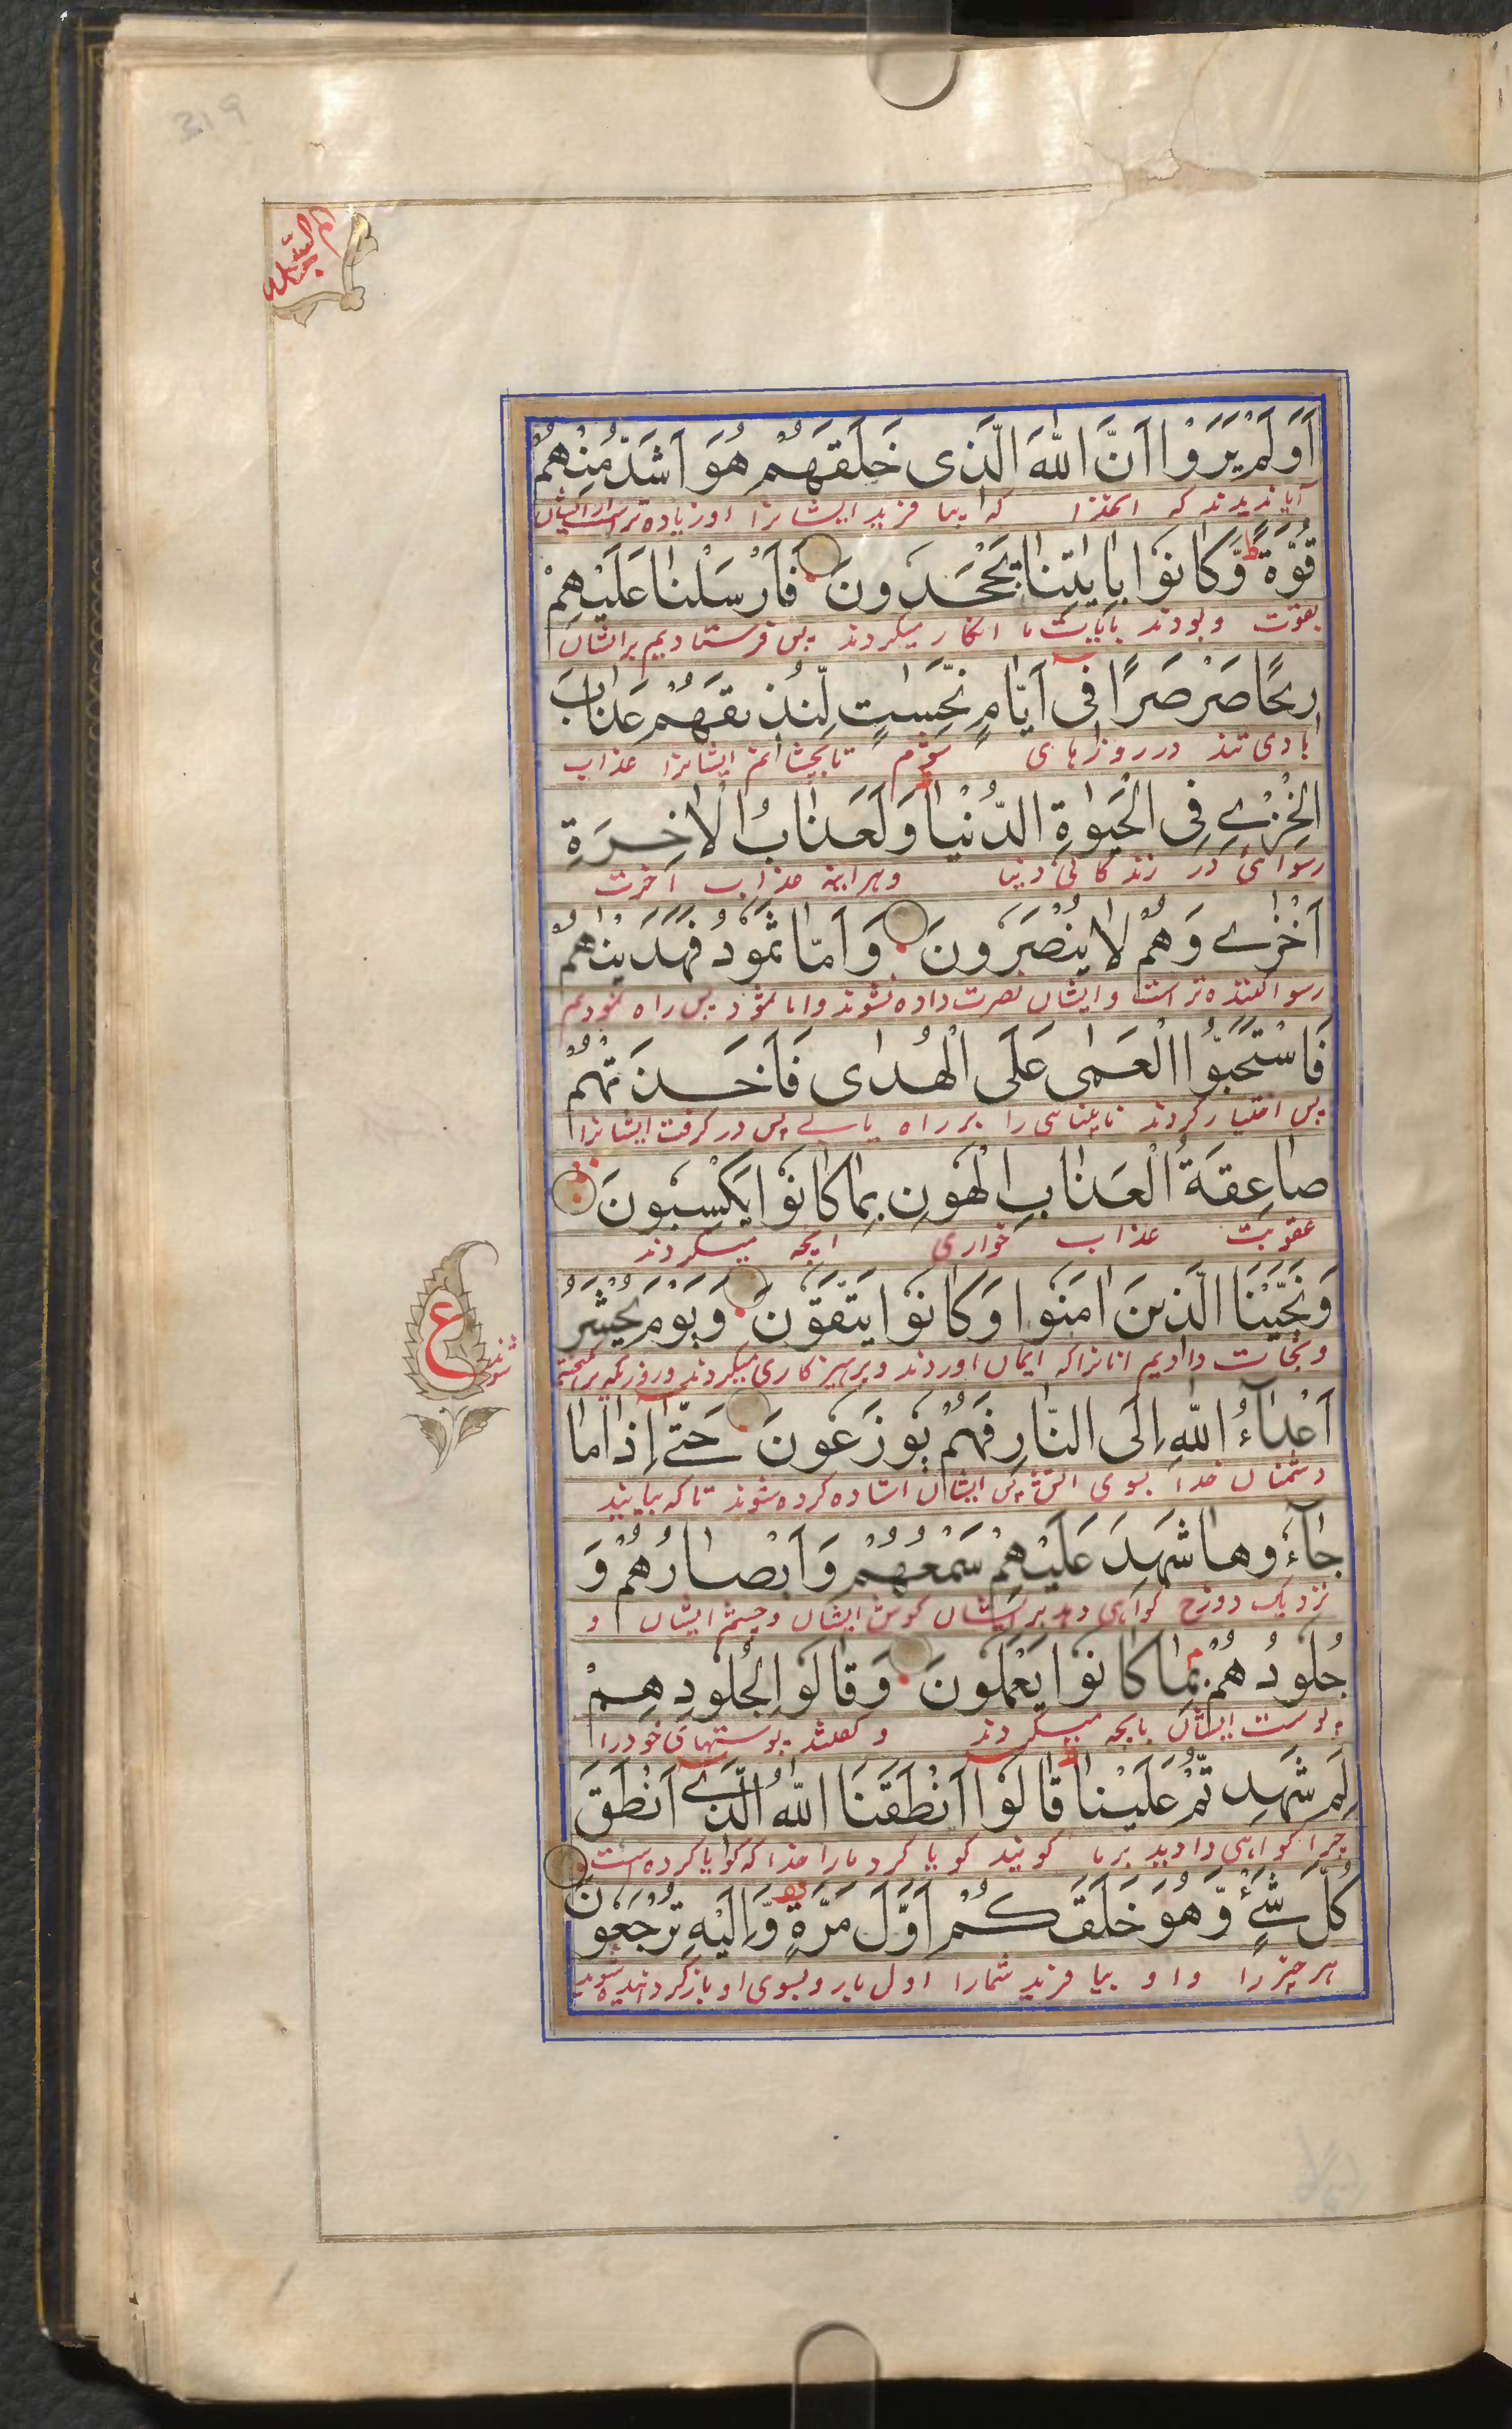 319
السجدة
اَوَلَمْ يَرَوْا اَنَّ اللّٰهَ الَّذی خَلَقَهُمْ هُوَ اَشَدُّ مِنْهُمْ
آیا ندیدند که الله را که بیا فرید ایشانرا او زیاده تر است از ایشان
قُوَّةً ط وَّكَانُوْا بِاٰيٰتِنَا يَجْحَدُونَ فَاَرْسَلْنَا عَلَيْهِمْ
بقوت و بودند بآیات ما انکار میکردند پس فرستادیم بر ایشان
رِيحًا صَرْصَرًا فِی اَيَّامٍ نَّحِسٰتٍ لِّنُذِيقَهُمْ عَذَابَ
بادی تند در روزهای شوم تا بچشانم ایشانرا عذاب
الْخِزْیِ فِی الْحَيٰوةِ الدُّنْيَا وَلَعَذَابُ الْاٰخِرَةِ
رسوائی در زندکانی دنیا و هر اینه عذاب آخرت
اَخْزٰی وَهُمْ لَا يُنْصَرُونَ وَاَمَّا ثَمُودُ فَهَدَيْنٰهُمْ
رسوا کننده تر است و ایشان نصرت داده نشوند و اما ثمود پس راه نمودیم
فَاسْتَحَبُّوا الْعَمٰی عَلَی الْهُدٰی فَاَخَذَتْهُمْ
پس اختیار کردند نابینائی را بر راه یابی پس در کرفت ایشانرا
صَاعِقَةُ الْعَذَابِ الْهُونِ بِمَا كَانُوْا يَكْسِبُونَ
عقوبت عذاب خواری انچه میکردند
وَنَجَّيْنَا الَّذِينَ اٰمَنُوا وَكَانُوْا يَتَّقُونَ وَيَوْمَ يُحْشَرُ
و نجات دادیم انانرا که ایمان اوردند و پرهیزکاری میکردند و روزیکه برانکیخته
شوند
ع
اَعْدَآءُ اللّٰهِ اِلَی النَّارِ فَهُمْ يُوزَعُونَ حَتّٰی اِذَا مَا
دشمنان خدا بسوی اتش پس ایشان استاده کرده شوند تا که بیایند
جَآءُوهَا شَهِدَ عَلَيْهِمْ سَمْعُهُمْ وَاَبْصَارُهُمْ وَ
نزدیک دوزخ کواهی دهد بر ایشان کوش ایشان و چشم ایشان و
جُلُودُهُمْ بِمَا كَانُوْا يَعْمَلُونَ وَقَالُوْا لِجُلُودِهِمْ
پوست ایشان بانچه میکردند و کفتند پوستهای خود را
لِمَ شَهِدْتُّمْ عَلَيْنَا ط قَالُوْا اَنْطَقَنَا اللّٰهُ الَّذِی اَنْطَقَ
چرا کواهی دادید بر ما کویند کویا کرد ما را خدا که کویا کرده است
كُلَّ شَیْءٍ وَّهُوَ خَلَقَكُمْ اَوَّلَ مَرَّةٍ وَّاِلَيْهِ تُرْجَعُونَ
هر چیز را و او بیا فرید شمارا اول بار و بسوی او باز کردانیده شوید